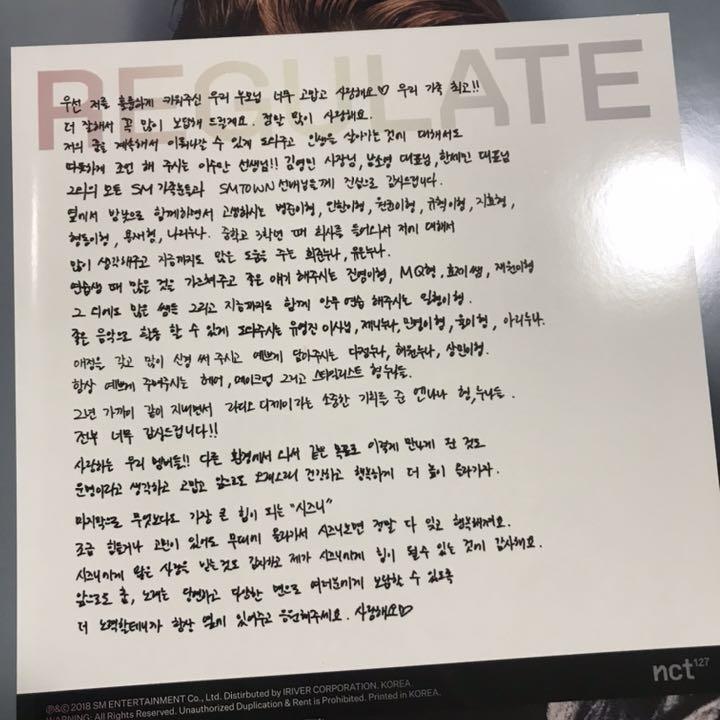 REGULATE
우선 저를 훌륭하게 키워주신 우리 부모님 너무 고맙고 사랑해요♡ 우리 가족 최고!!
더 잘해서 꼭 많이 보답해 드릴게요. 정말 많이 사랑해요.
저의 꿈을 계속해서 이뤄나갈 수 있게 도와주고 인생을 살아가는 것에 대해서도
따뜻하게 조언 해 주시는 이수만 선생님!! 김영민 사장님, 남소영 대표님, 한세민 대표님
그외의 모든 SM 가족분들과 SMTOWN 선배님들께 진심으로 감사드립니다.
옆에서 밤낮으로 함께하면서 고생하시는 병준이형, 인환이형, 천균이형, 규척이형, 지호형,
형동이형, 용재형, 나리누나. 중학교 3학년 때 회사를 들어와서 저에 대해서
많이 생각해주고 지금까지도 많은 도움을 주는 희준누나, 유은누나.
연습생 때 많은 것을 가르쳐주고 좋은 얘기 해주시는 진영이형, MQ형, 효지쌤, 재원이형
그 외에도 많은 쌤들 그리고 지금까지도 함께 안무 연습 해주시는 일형이형.
좋은 음악으로 활동 할 수 있게 도와주시는 유영진 이사님, 제니누나, 민경이형, 율이형, 아리누나.
애정을 갖고 많이 신경 써 주시고 예쁘게 담아주시는 다정누나, 혜원누나, 상민이형.
항상 예쁘게 꾸며주시는 헤어, 메이크업 그리고 스타일리스트 형누나들.
그년 가까이 같이 지내면서 라디오 디제이라는 소중한 기회를 준 엔나나 형,누나들.
전부 너무 감사드립니다!!
사랑하는 우리 멤버들!! 다른 환경에서 나서 같은 목표로 이렇게 만나게 된 것도
운명이라고 생각하고 고맙고 앞으로도 오래오래 건강하고 행복하게 더 높이 올라가자.
마지막으로 무엇보다도 가장 큰 힘이 되는 "시즈니"
조금 힘들거나 고민이 있어도 무대에 올라가서 시즈니보면 정말 다 잊고 행복해져요.
시즈니에게 많은 사랑을 받는것도 감사하고 제가 시즈니에게 힘이 될수 있는 것에 감사해요.
앞으로도 춤, 노래는 당연하고 다양한 면으로 여러분에게 보답할 수 있도록
더 노력할테니까 항상 옆에 있어주고 응원해주세요. 사랑해요♡
nct 127
℗&© 2018 SM ENTERTAINMENT Co., Ltd. Distirbuted by IRIVER CORPORATION. KOREA.
WARNING: All Rights Reserved. Unauthorized Duplication & Rent is Prohibited. Printed in KOREA.